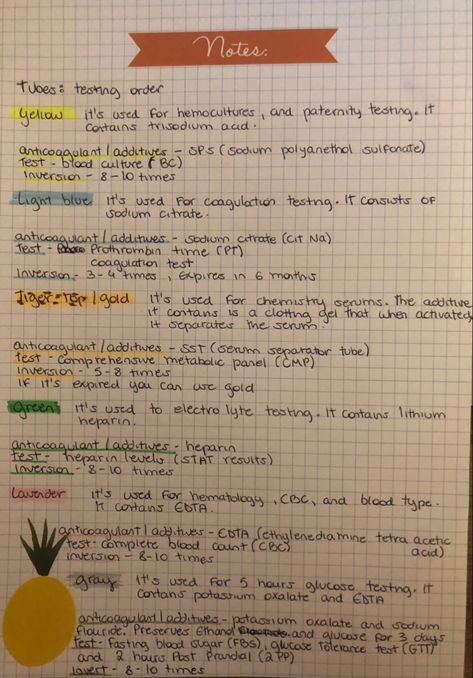 Notes:
Tubes: testing order
Yellow it's used for hemocultures, and paternity testing. It
contains trisodium acid.
anticoagulant/additives - SPS (sodium polyanethol sulfonate)
Test - blood culture (BC)
Inversion - 8-10 times
Light blue It's used for coagulation testing. It consists of
sodium citrate.
anticoagulant/additives - sodium citrate (cit Na)
Test - Prothrombin time (PT)
coagulation test
Inversion - 3-4 times, Expires in 6 months
Tiger-top/gold It's used for chemistry serums. The additive
it contains is a clotting gel that when activated,
it separates the serum.
anticoagulant/additives - SST (serum separator tube)
test - comprehensive metabolic panel (CMP)
inversion - 5-8 times
If it's expired you can use gold
Green it's used to electrolyte testing. It contains lithium
heparin.
anticoagulant/additives - heparin
Test - heparin levels (STAT results)
Inversion - 8-10 times
Lavender it's used for hematology, CBC, and blood type.
It contains EDTA.
anticoagulant/additives - EDTA (ethylenediamine tetra acetic
acid)
test - complete blood count (CBC)
inversion - 8-10 times
gray It's used for 5 hours glucose testing. It
contains potassium oxalate and EDTA
anticoagulant/additives - potassium oxalate and sodium
flouride. Preserves Ethanol and glucose for 3 days
Test - Fasting blood sugar (FBS), glucose tolerance test (GTT)
and 2 hours Post Prandial (2PP)
Invert - 8-10 times